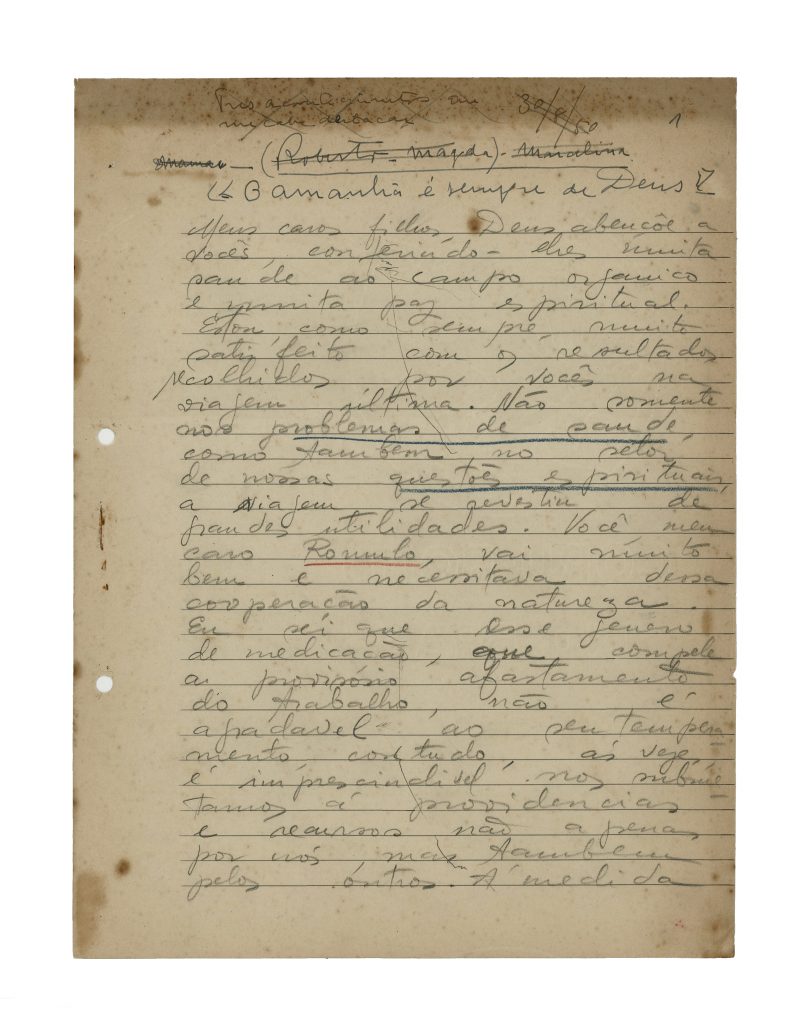 Tres acontecimentos em 30/8/50 1
(Roberto - Magda) - Marcelina
O amanhã é sempre de Deus
Meus caros filhos, Deus abençõe a
vocês, conferindo-lhes muita
saúde ao campo organico
e muita paz espiritual.
Estou como sempre, muito
satisfeito com os resultados
recolhidos por vocês na
viagem última. Não somente
nos problemas de saude,
como tambem no setor
de nossas questões espirituais,
a viagem se revestiu de
grandes utilidades. Você meu
caro Romulo, vai muito
bem e necessitava dessa
cooperação da natureza.
Eu sei que esse genero
de medicação, que compele
ao provisório afastamento
do trabalho, não é
agradavel ao seu tempera
mento contudo, ás veze
é imprescindivel nos subme
tamos á providencias
e recursos não apenas
por nós, mas tambem
pelos outros. Á medida